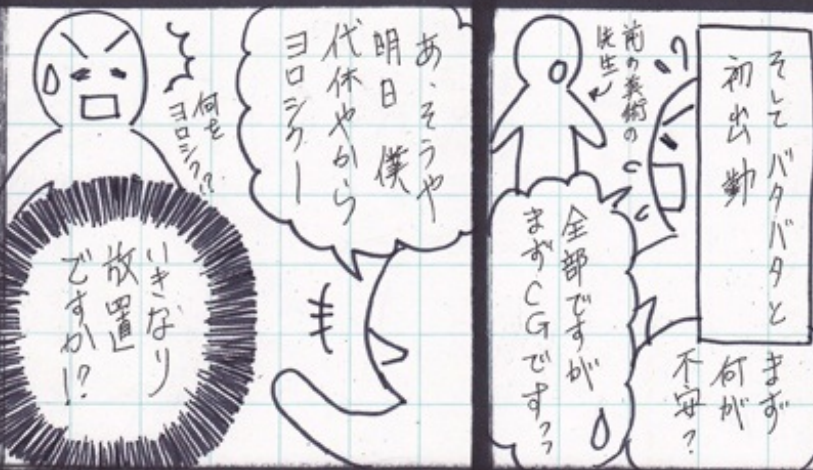 そして バタバタと
初出勤
まず
何が
不安?
前の美術の
先生
全部ですが
まずCGです??
あ、そうや
明日 僕
代休やから
ヨロシクー
何を
ヨロシク!?
いきなり
放置
ですか!?